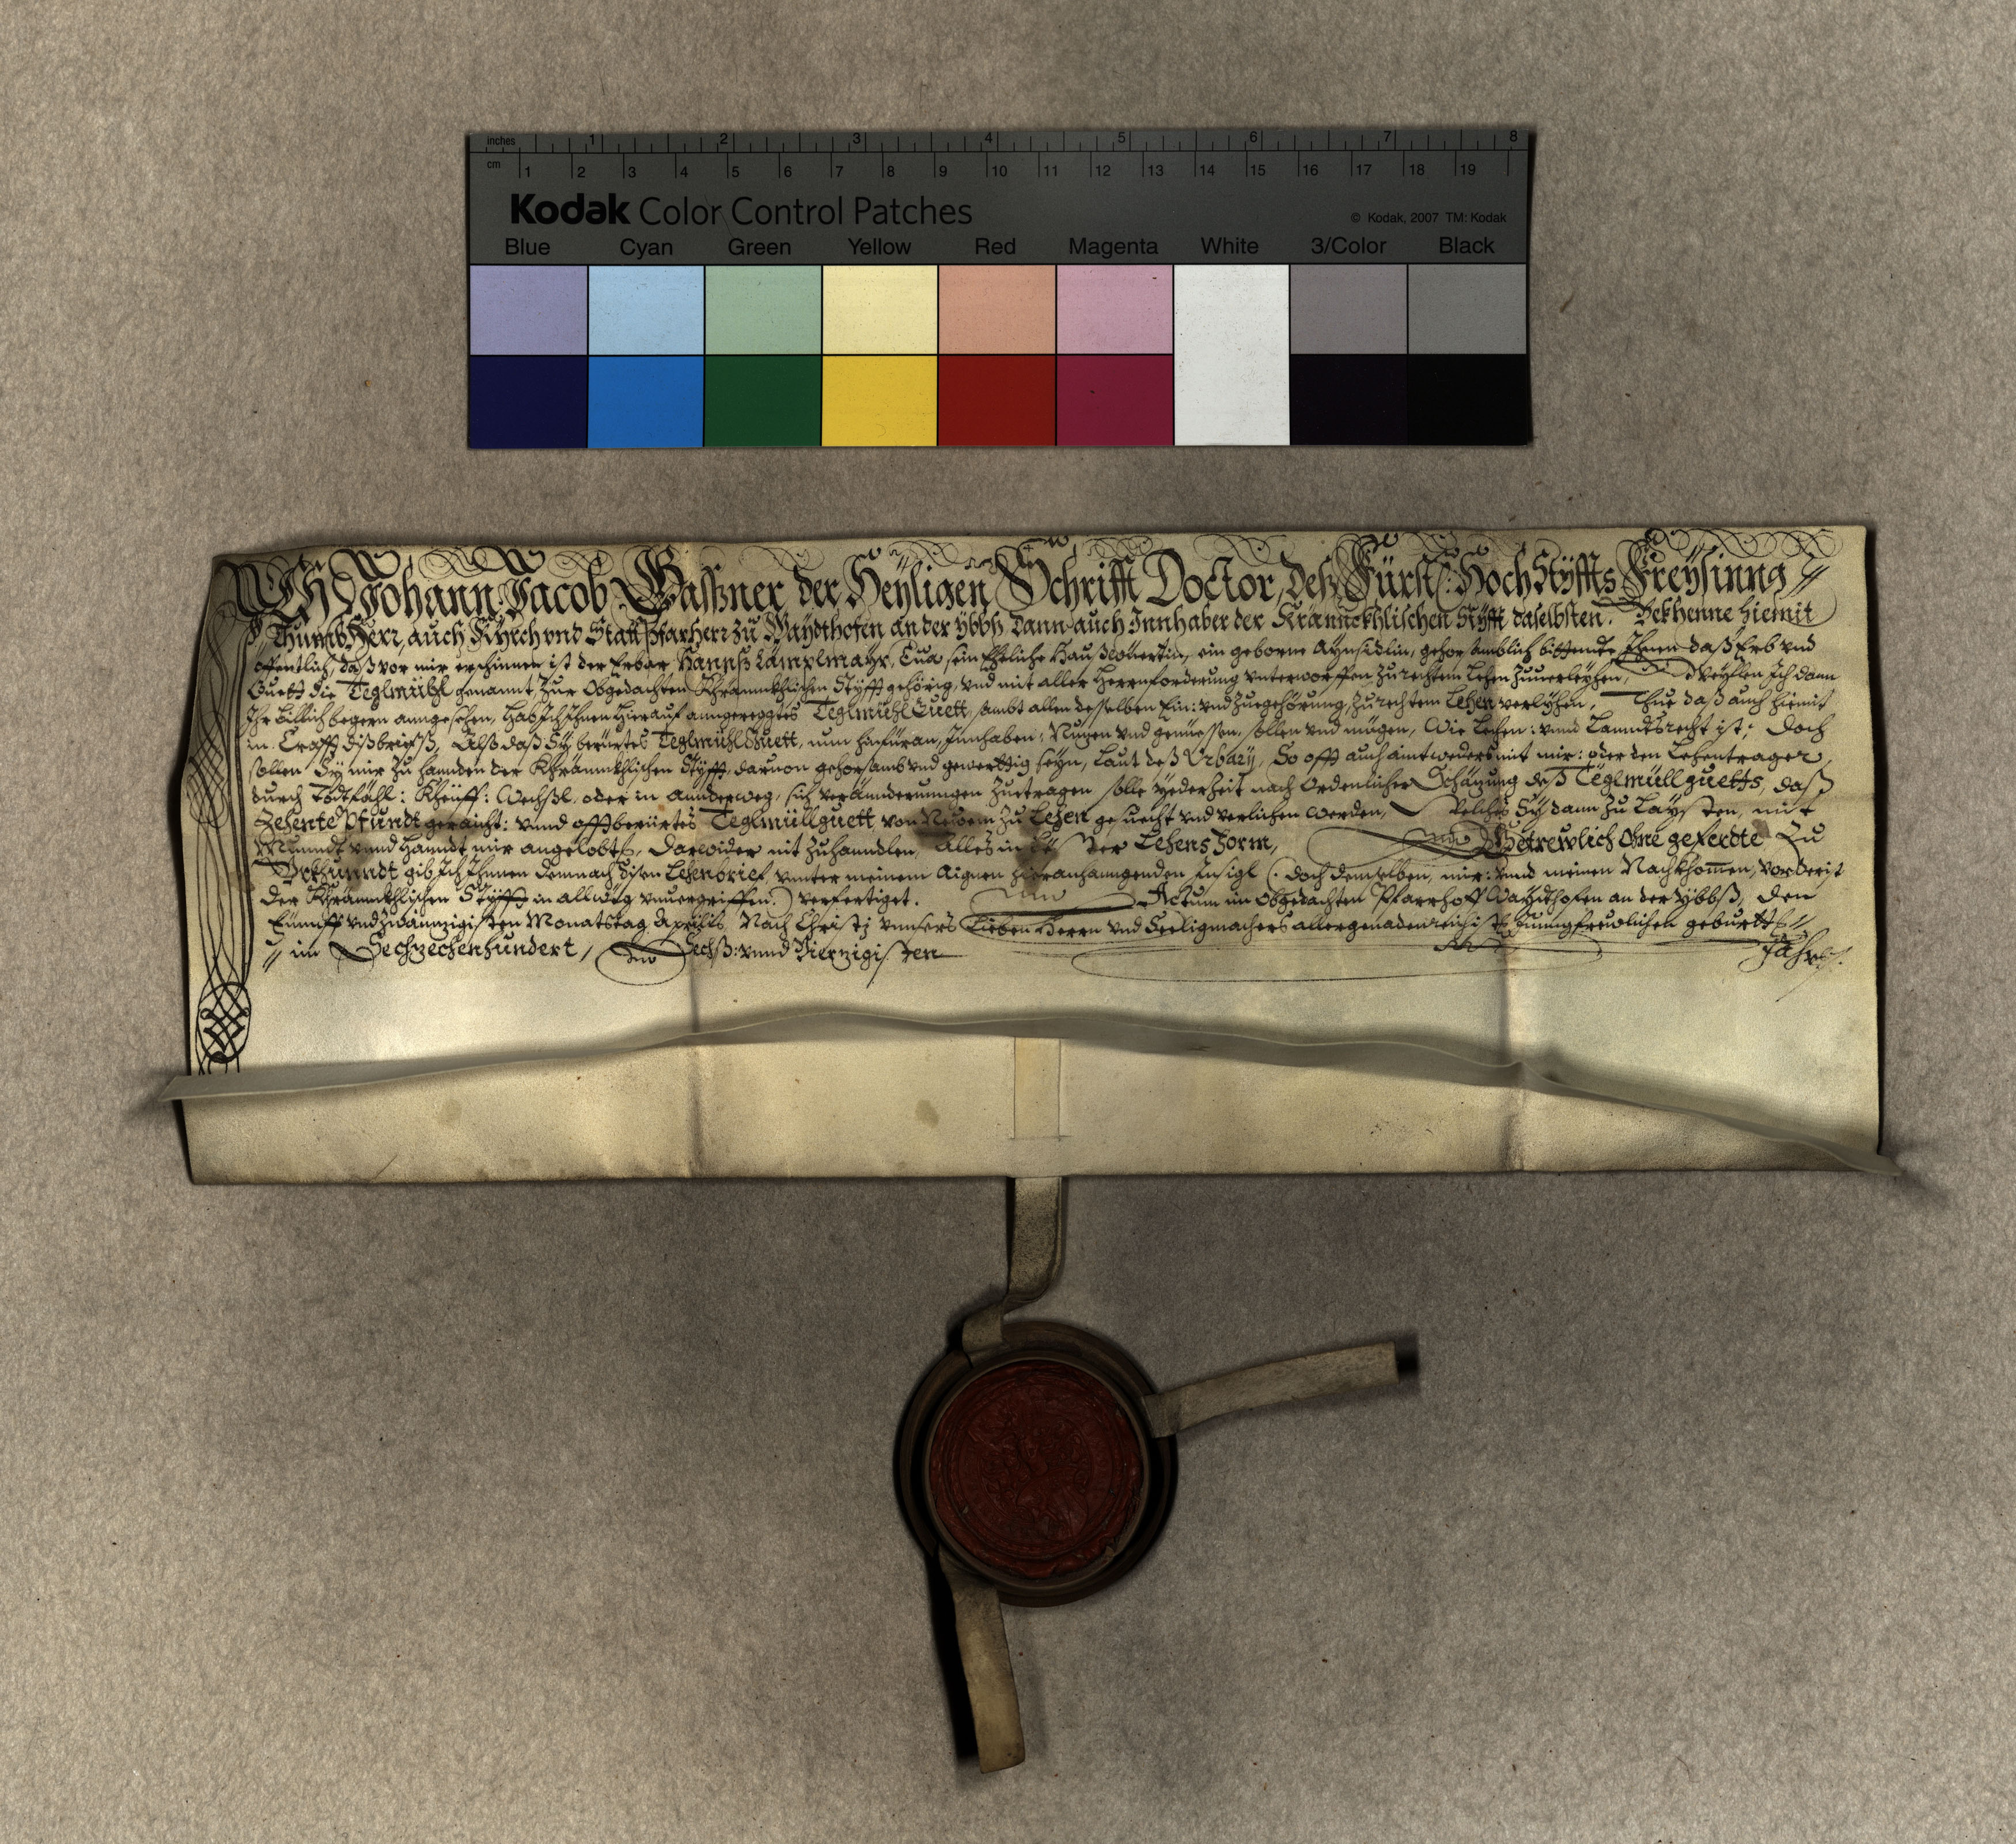 inches 1 2 3 4 5 6 7 8
cm 1 2 3 4 5 6 7 8 9 10 11 12 13 14 15 16 17 18 19
Kodak Color Control Patches
© Kodak, 2007 TM: Kodak
Blue Cyan Green Yellow Red Magenta White 3/Color Black
Ich Johann Jacob Gassner der Heyligen Schrifft Doctor, deß Fürstl: HochStÿffts Freysinng
ThumbHerr, auch Kÿrch vnd StattPfarHerr zu Waydthofen an der ÿbbß, dann auch Innhaber der Krännckhlischen Stÿfft daselbsten. Bekhenne hiemit
offentlich, daß vor mir erschinnen ist der Erbar Hannß Lämplmayr, Eua sein Eheliche Haußwüertin, ein geborne gehorsamblich bittendte Ihnen daß Erb vnd
Guett die Teglmühl genannt, zur Obgedachten Khrännckhlischen Stÿfft gehörig, vnd mit aller Herrnforderung vnterworffen zu rechtem Lehen zuuerleyhen, Weÿlen Ich dann
Ihr billich begern anngesehen, hab Ich Ihnen hierauf anngeregtes TeglmühlGuett, sambt allen desselben Ein: vnd Zuegehörung, zu rechtem Lehen verlyhen, Thue daß auch hiemit
in Crafft diß briefß, Alß daß Sÿ berürtes TeglmühlGuett, nun hinfüran, Innhaben, Nuzen vnd genüessen, sollen vnd mögen, Wie Lehen: vnnd Lanndtsrecht ist; Doch
sollen Sÿ mir zu hannden der Khrännckhlischen Stÿfft, daruon gehorsamb vnd gewerttig seyn, Laut deß Vrbary, So offt auch aintweders mit mir: oder den Lehentrager,
durch Todtfähl: Kheüff: Wechßl, oder in annderweg, sich verännderungen zuetragen solle yederzeit nach Ordenlicher Schäzung deß Teglmüllguetts, daß
Zehente Pfundt geraicht: vnnd offtberürtes Teglmüllguett von Neüem zu Lehen gesuecht vnd verlichen werden, Welches Sÿ dann zu Laÿsten, mit
Munndt vnnd Hanndt mir angelobt, darwider nit zuhanndlen, Alles in der Lehens Form, Getrewlich ohne geferdte Zu
Vrkhunndt gib Ich Ihnnen demnach disen Lehenbrief, vnnter meinem Aignen hieranhanngenden Insigl (: doch demselben, mir: vnnd meinen Nachkhomen, vorderist
der Khrännckhlischen Stÿfft in allweg vnuergriffen :) verfertiget. Actum im Obgedachten Pfarrhoff Waydthofen an der ÿbbß, den
Fünnff vnd Zwainnzigisten Monatstag Aprilis, Nach Christi vnnsers Lieben Herrn vnd Seeligmachers allergenadenreichisten Junngfrewlichen geburtt
im Sechzechenhundert, Sechß: vnnd Vierzigisten Jahrs.